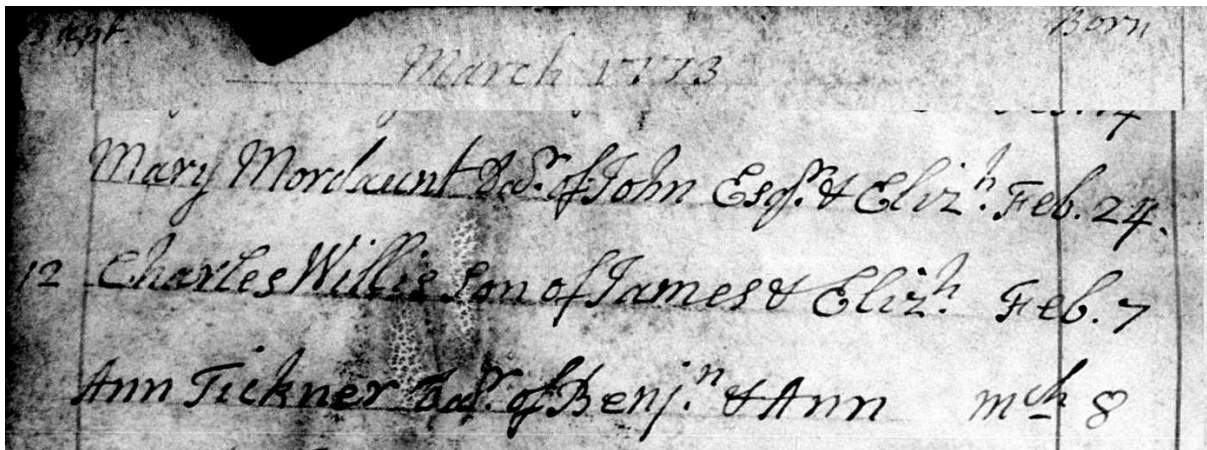 Bapt. Born
March 1773
Mary Mordaunt Dar. of John Esqr. & Elizh. Feb. 24.
12 Charles Willis Son of James & Elizh. Feb. 7
Ann Tickner Dar. of Benjn. & Ann Mch 8